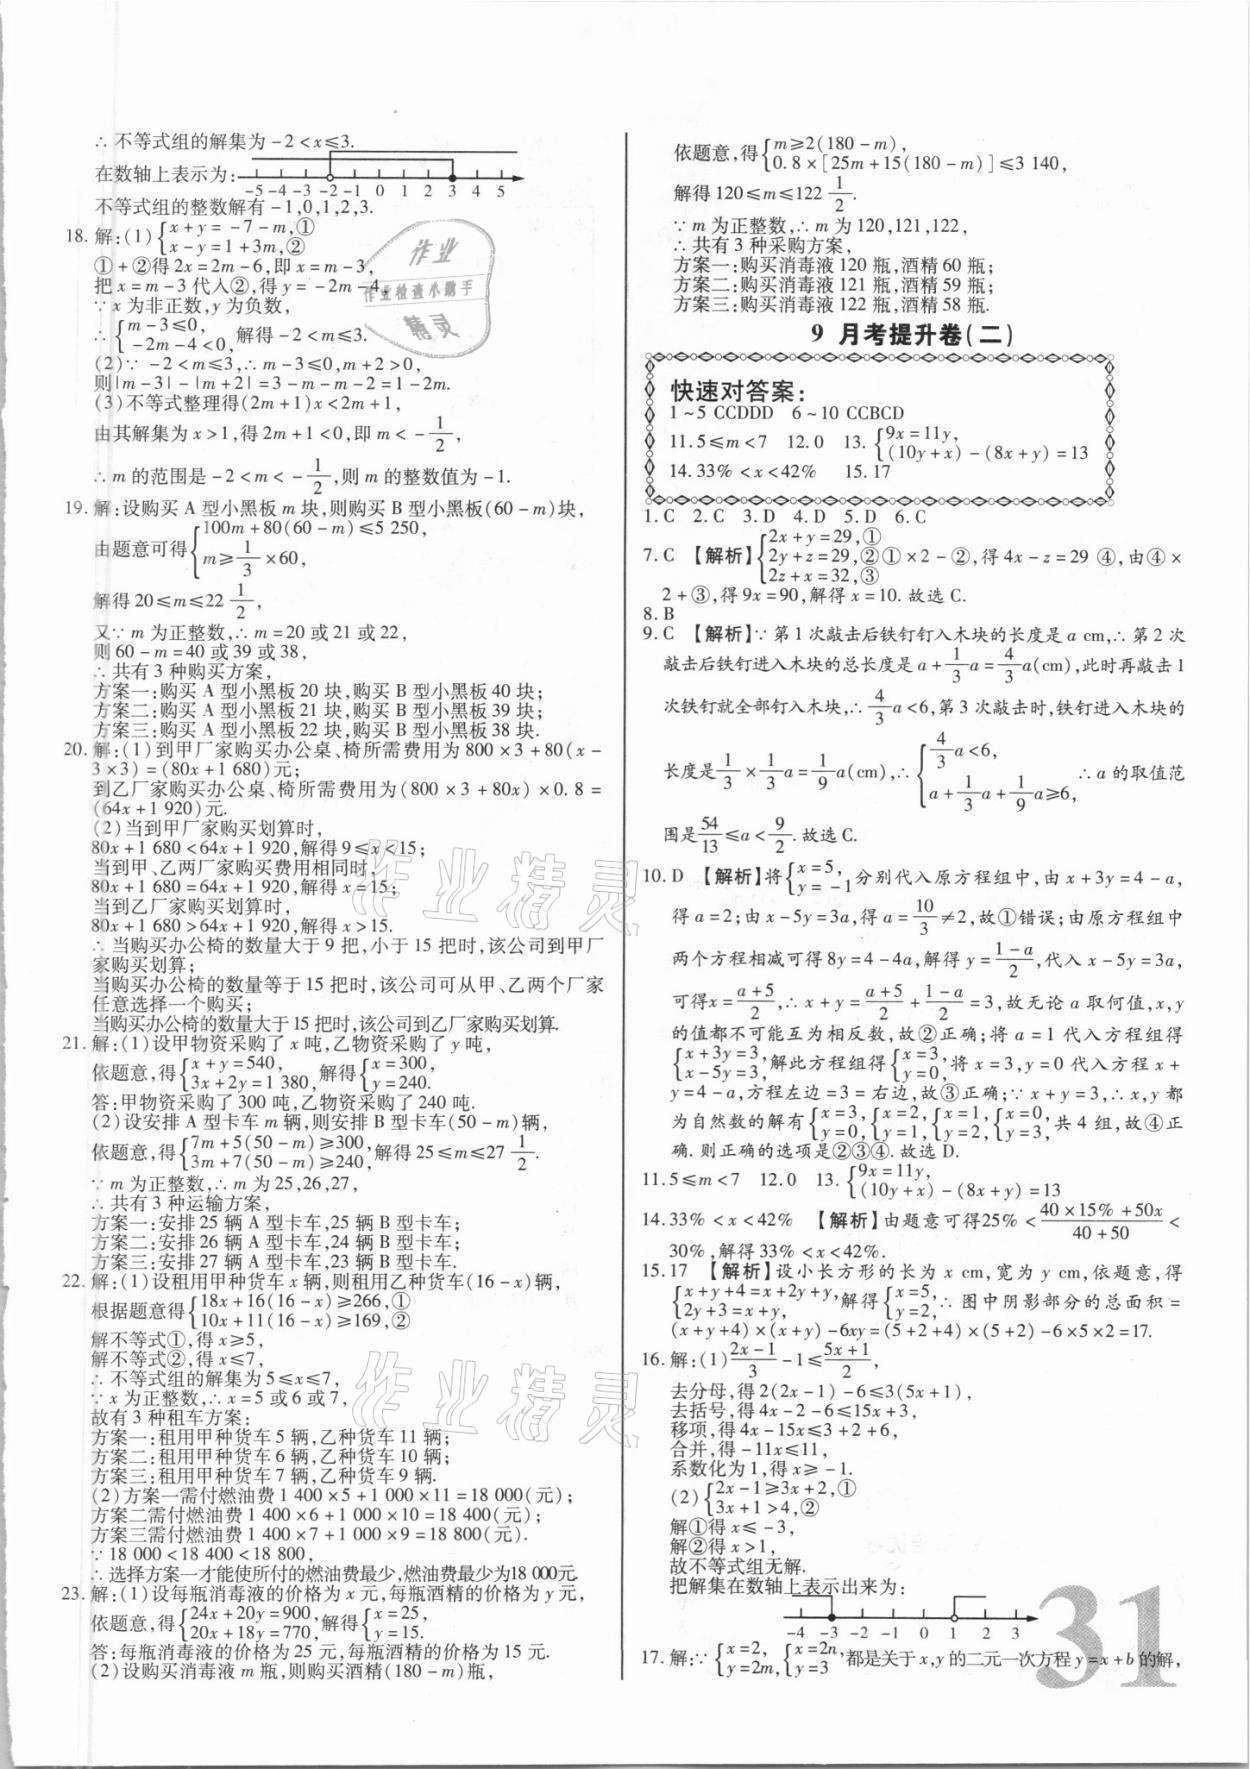 ∴ 不等式组的解集为 -2 < x ≤ 3.
在数轴上表示为:
-5 -4 -3 -2 -1 0 1 2 3 4 5
不等式组的整数解有 -1,0,1,2,3.
18. 解:(1) {x + y = -7 - m,①
x - y = 1 + 3m,②
① + ②得 2x = 2m - 6,即 x = m - 3,
把 x = m - 3 代入②,得 y = -2m - 4,
∵ x 为非正数,y 为负数,
∴ {m - 3 ≤ 0,
-2m - 4 < 0, 解得 -2 < m ≤ 3.
(2)∵ -2 < m ≤ 3,∴ m - 3 ≤ 0,m + 2 > 0,
则|m - 3| - |m + 2| = 3 - m - m - 2 = 1 - 2m.
(3)不等式整理得(2m + 1)x < 2m + 1,
由其解集为 x > 1,得 2m + 1 < 0,即 m < -1/2,
∴ m 的范围是 -2 < m < -1/2,则 m 的整数值为 -1.
19. 解:设购买 A 型小黑板 m 块,则购买 B 型小黑板(60 - m)块,
由题意可得 {100m + 80(60 - m) ≤ 5 250,
m ≥ 1/3 × 60,
解得 20 ≤ m ≤ 22 1/2,
又∵ m 为正整数,∴ m = 20 或 21 或 22,
则 60 - m = 40 或 39 或 38,
∴ 共有 3 种购买方案,
方案一:购买 A 型小黑板 20 块,购买 B 型小黑板 40 块;
方案二:购买 A 型小黑板 21 块,购买 B 型小黑板 39 块;
方案三:购买 A 型小黑板 22 块,购买 B 型小黑板 38 块.
20. 解:(1)到甲厂家购买办公桌、椅所需费用为 800 × 3 + 80(x -
3 × 3) = (80x + 1 680)元;
到乙厂家购买办公桌、椅所需费用为(800 × 3 + 80x) × 0.8 =
(64x + 1 920)元.
(2)当到甲厂家购买划算时,
80x + 1 680 < 64x + 1 920,解得 9 ≤ x < 15;
当到甲、乙两厂家购买费用相同时,
80x + 1 680 = 64x + 1 920,解得 x = 15;
当到乙厂家购买划算时,
80x + 1 680 > 64x + 1 920,解得 x > 15.
∴ 当购买办公椅的数量大于 9 把,小于 15 把时,该公司到甲厂
家购买划算;
当购买办公椅的数量等于 15 把时,该公司可从甲、乙两个厂家
任意选择一个购买;
当购买办公椅的数量大于 15 把时,该公司到乙厂家购买划算.
21. 解:(1)设甲物资采购了 x 吨,乙物资采购了 y 吨,
依题意,得 {x + y = 540,
3x + 2y = 1 380, 解得 {x = 300,
y = 240.
答:甲物资采购了 300 吨,乙物资采购了 240 吨.
(2)设安排 A 型卡车 m 辆,则安排 B 型卡车(50 - m)辆,
依题意,得 {7m + 5(50 - m) ≥ 300,
3m + 7(50 - m) ≥ 240, 解得 25 ≤ m ≤ 27 1/2.
∵ m 为正整数,∴ m 为 25,26,27,
∴ 共有 3 种运输方案,
方案一:安排 25 辆 A 型卡车,25 辆 B 型卡车;
方案二:安排 26 辆 A 型卡车,24 辆 B 型卡车;
方案三:安排 27 辆 A 型卡车,23 辆 B 型卡车.
22. 解:(1)设租用甲种货车 x 辆,则租用乙种货车(16 - x)辆,
根据题意得 {18x + 16(16 - x) ≥ 266,①
10x + 11(16 - x) ≥ 169,②
解不等式①,得 x ≥ 5,
解不等式②,得 x ≤ 7,
∴ 不等式组的解集为 5 ≤ x ≤ 7,
∵ x 为正整数,∴ x = 5 或 6 或 7,
故有 3 种租车方案:
方案一:租用甲种货车 5 辆,乙种货车 11 辆;
方案二:租用甲种货车 6 辆,乙种货车 10 辆;
方案三:租用甲种货车 7 辆,乙种货车 9 辆.
(2)方案一需付燃油费 1 400 × 5 + 1 000 × 11 = 18 000(元);
方案二需付燃油费 1 400 × 6 + 1 000 × 10 = 18 400(元);
方案三需付燃油费 1 400 × 7 + 1 000 × 9 = 18 800(元).
∵ 18 000 < 18 400 < 18 800,
∴ 选择方案一才能使所付的燃油费最少,燃油费最少为18 000元.
23. 解:(1)设每瓶消毒液的价格为 x 元,每瓶酒精的价格为 y 元,
依题意,得 {24x + 20y = 900,
20x + 18y = 770, 解得 {x = 25,
y = 15.
答:每瓶消毒液的价格为 25 元,每瓶酒精的价格为 15 元.
(2)设购买消毒液 m 瓶,则购买酒精(180 - m)瓶,
依题意,得 {m ≥ 2(180 - m),
0.8 × [25m + 15(180 - m)] ≤ 3 140,
解得 120 ≤ m ≤ 122 1/2.
∵ m 为正整数,∴ m 为 120,121,122,
∴ 共有 3 种采购方案,
方案一:购买消毒液 120 瓶,酒精 60 瓶;
方案二:购买消毒液 121 瓶,酒精 59 瓶;
方案三:购买消毒液 122 瓶,酒精 58 瓶.
9 月考提升卷(二)
快速对答案:
1~5 CCDDD 6~10 CCBCD
11. 5 ≤ m < 7 12. 0 13. {9x = 11y,
(10y + x) - (8x + y) = 13
14. 33% < x < 42% 15. 17
1. C 2. C 3. D 4. D 5. D 6. C
7. C 【解析】{2x + y = 29,①
2y + z = 29,②
2z + x = 32,③ ① × 2 - ②,得 4x - z = 29 ④,由④ ×
2 + ③,得 9x = 90,解得 x = 10. 故选 C.
8. B
9. C 【解析】∵ 第 1 次敲击后铁钉钉入木块的长度是 a cm,∴ 第 2 次
敲击后铁钉进入木块的总长度是 a + 1/3 a = 4/3 a(cm),此时再敲击 1
次铁钉就全部钉入木块,∴ 4/3 a < 6,第 3 次敲击时,铁钉进入木块的
长度是 1/3 × 1/3 a = 1/9 a(cm),∴ {4/3 a < 6,
a + 1/3 a + 1/9 a ≥ 6, ∴ a 的取值范
围是 54/13 ≤ a < 9/2. 故选 C.
10. D 【解析】将 {x = 5,
y = -1 分别代入原方程组中,由 x + 3y = 4 - a,
得 a = 2;由 x - 5y = 3a,得 a = 10/3 ≠ 2,故①错误;由原方程组中
两个方程相减可得 8y = 4 - 4a,解得 y = (1 - a)/2,代入 x - 5y = 3a,
可得 x = (a + 5)/2,∴ x + y = (a + 5)/2 + (1 - a)/2 = 3,故无论 a 取何值,x,y
的值都不可能互为相反数,故②正确;将 a = 1 代入方程组得
{x + 3y = 3,
x - 5y = 3, 解此方程组得 {x = 3,
y = 0, 将 x = 3,y = 0 代入方程 x +
y = 4 - a,方程左边 = 3 = 右边,故③正确;∵ x + y = 3,∴ x,y 都
为自然数的解有 {x = 3,
y = 0, {x = 2,
y = 1, {x = 1,
y = 2, {x = 0,
y = 3, 共 4 组,故④正
确. 则正确的选项是②③④. 故选 D.
11. 5 ≤ m < 7 12. 0 13. {9x = 11y,
(10y + x) - (8x + y) = 13
14. 33% < x < 42% 【解析】由题意可得25% < (40 × 15% + 50x)/(40 + 50) <
30%,解得 33% < x < 42%.
15. 17 【解析】设小长方形的长为 x cm,宽为 y cm,依题意,得
{x + y + 4 = x + 2y + y,
2y + 3 = x + y, 解得 {x = 5,
y = 2, ∴ 图中阴影部分的总面积 =
(x + y + 4) × (x + y) - 6xy = (5 + 2 + 4) × (5 + 2) - 6 × 5 × 2 = 17.
16. 解:(1) (2x - 1)/3 - 1 ≤ (5x + 1)/2,
去分母,得 2(2x - 1) - 6 ≤ 3(5x + 1),
去括号,得 4x - 2 - 6 ≤ 15x + 3,
移项,得 4x - 15x ≤ 3 + 2 + 6,
合并,得 -11x ≤ 11,
系数化为 1,得 x ≥ -1.
(2) {2x - 1 ≥ 3x + 2,①
3x + 1 > 4,②
解①得 x ≤ -3,
解②得 x > 1,
故不等式组无解.
把解集在数轴上表示出来为:
-4 -3 -2 -1 0 1 2 3
17. 解:∵ {x = 2,
y = 2m, {x = 2n,
y = 3 都是关于 x,y 的二元一次方程 y = x + b 的解,
31
作业
作业检查小帮手
精灵
作业精灵
作业精灵